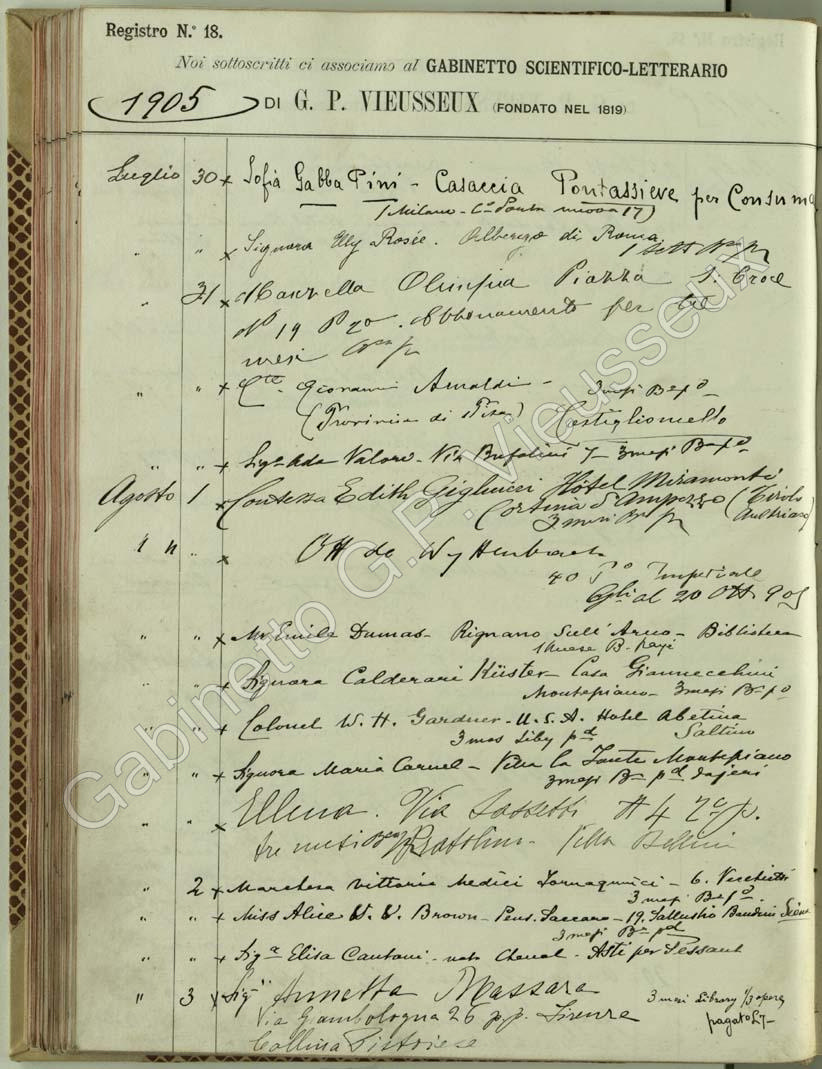 Registro N.° 18.
Noi sottoscritti ci associamo al GABINETTO SCIENTIFICO-LETTERARIO
1905 DI G. P. VIEUSSEUX (FONDATO NEL 1819)
Luglio 30 x Sofia Gabba Pini - Casaccia Pontassieve per Consuma
(Milano - C.so Porta nuova 17)
" " x Signora Elly Rosée. Albergo di Roma
" 31 x Olimpia Piazza S. Croce
N° 19 P° 2°. Abbonamento per tre
mesi
" " x Cte. Giovanni Arnaldi - 3 mesi
(Provincia di Pisa) Castiglioncello
" " x Sigra Ada Valori - Via Bufalini 7 - 3 mesi
Agosto 1 x Contessa Edith Gigliucci Hôtel Miramonti
Cortina d'Ampezzo (Tirolo
3 mesi Austriaco)
" " " x Ott de Wyttenbach
40 Imperiale
al 20 Ott. 905
" " x Mr Emile Dumas - Rignano sull'Arno - Biblioteca
1 mese
" " x Signora Calderari Küster - Casa Giannecchini
Montepiano - 3 mesi
" " x Colonel W. H. Gardner - U.S.A. Hotel Abetina
3 mos Liby pd Saltino
" " x Signora Maria Caruel - Villa la Fonte Montepiano
3 mesi
" " x Ellena. Via Sassetti # 4 2° p.
tre mesi Pratolino - Villa Bellini
" 2 x Marchesa Vittoria Medici Tornaquinci - 6. Vecchietti
3 mesi
" " x Miss Alice V. V. Brown - Pens. Saccaro - 19. Sallustio Bandini Siena
3 mesi
" " x Sigra Elisa Cantoni - nata - Asti per Sessant
" 3 x Sigra Annetta Massara 3 mesi Library 1/3 opera
Via Giambologna 26 p.p. Firenze pagato £7-
Collina Pistoiese
Gabinetto G.P. Vieusseux